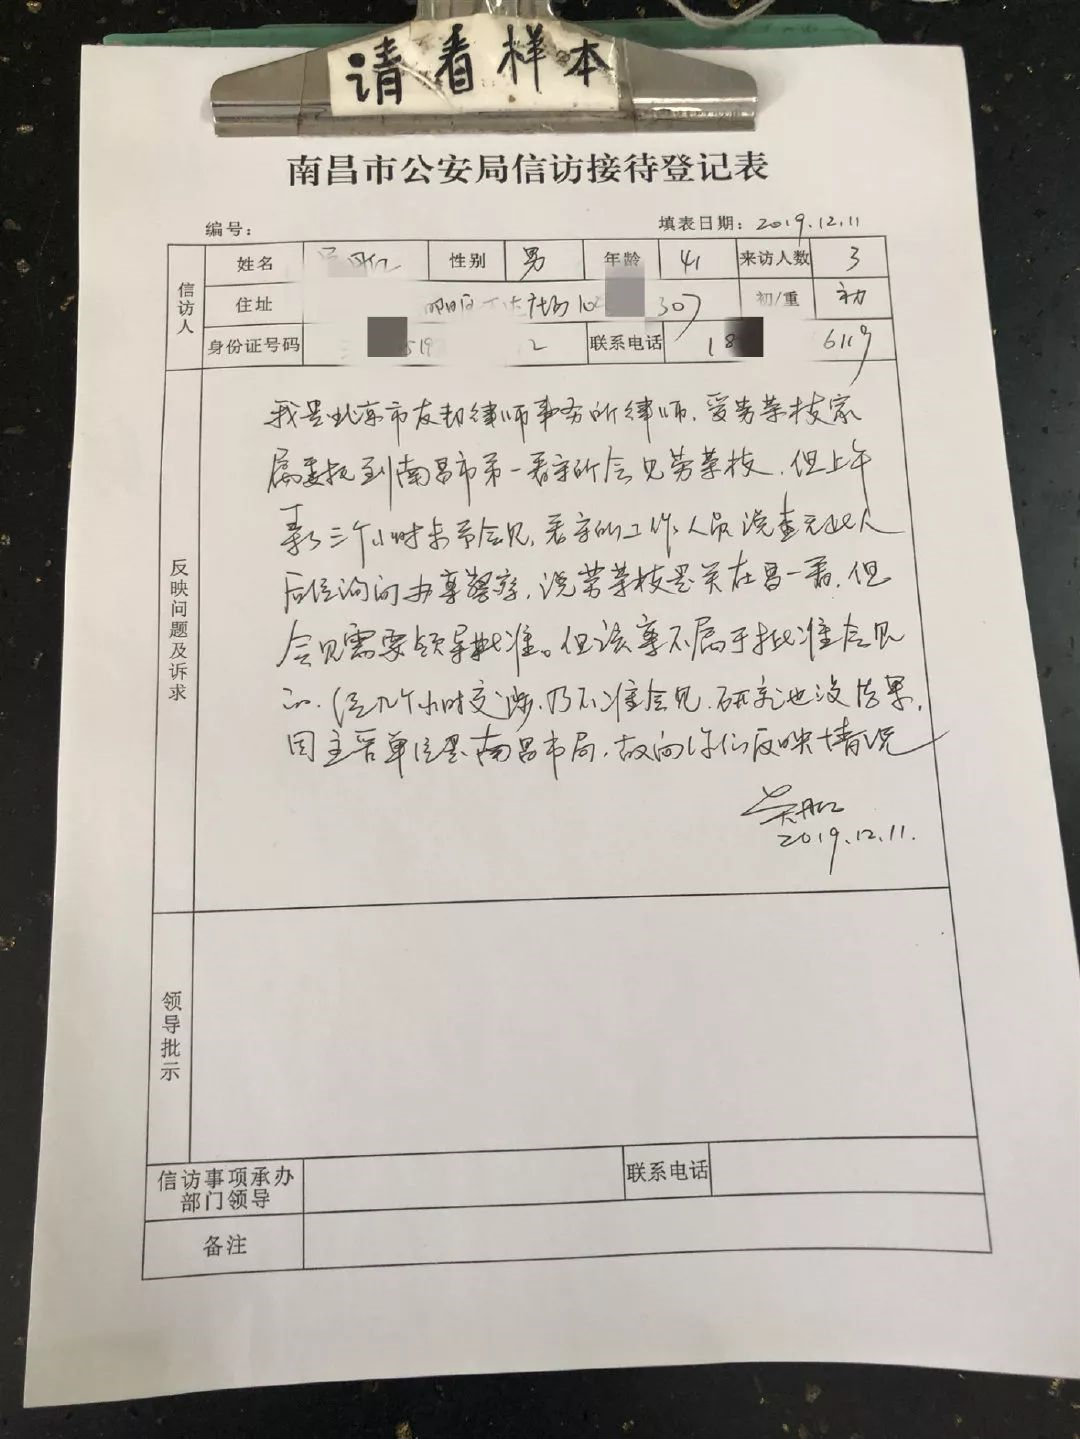 请看样本
南昌市公安局信访接待登记表
编号： 填表日期：2019.12.11
信访人
姓名 性别 男 年龄 41 来访人数 3
住址 广场 307 初/重 初
身份证号码 519 2 联系电话 18 6119
反映问题及诉求
我是北京市友邦律师事务所律师，受劳荣枝家
属委托到南昌市第一看守所会见劳荣枝，但上午
三个小时未予会见，看守所工作人员说查无此人
后经询问办事警察，说劳荣枝是关在昌一看，但
会见需要领导批准。但该事不属于批准会见
的，经几个小时交涉，仍不准会见，研究也没结果，
因主管单位是南昌市局，故向你们反映情况
2019.12.11.
领导批示
信访事项承办部门领导 联系电话
备注